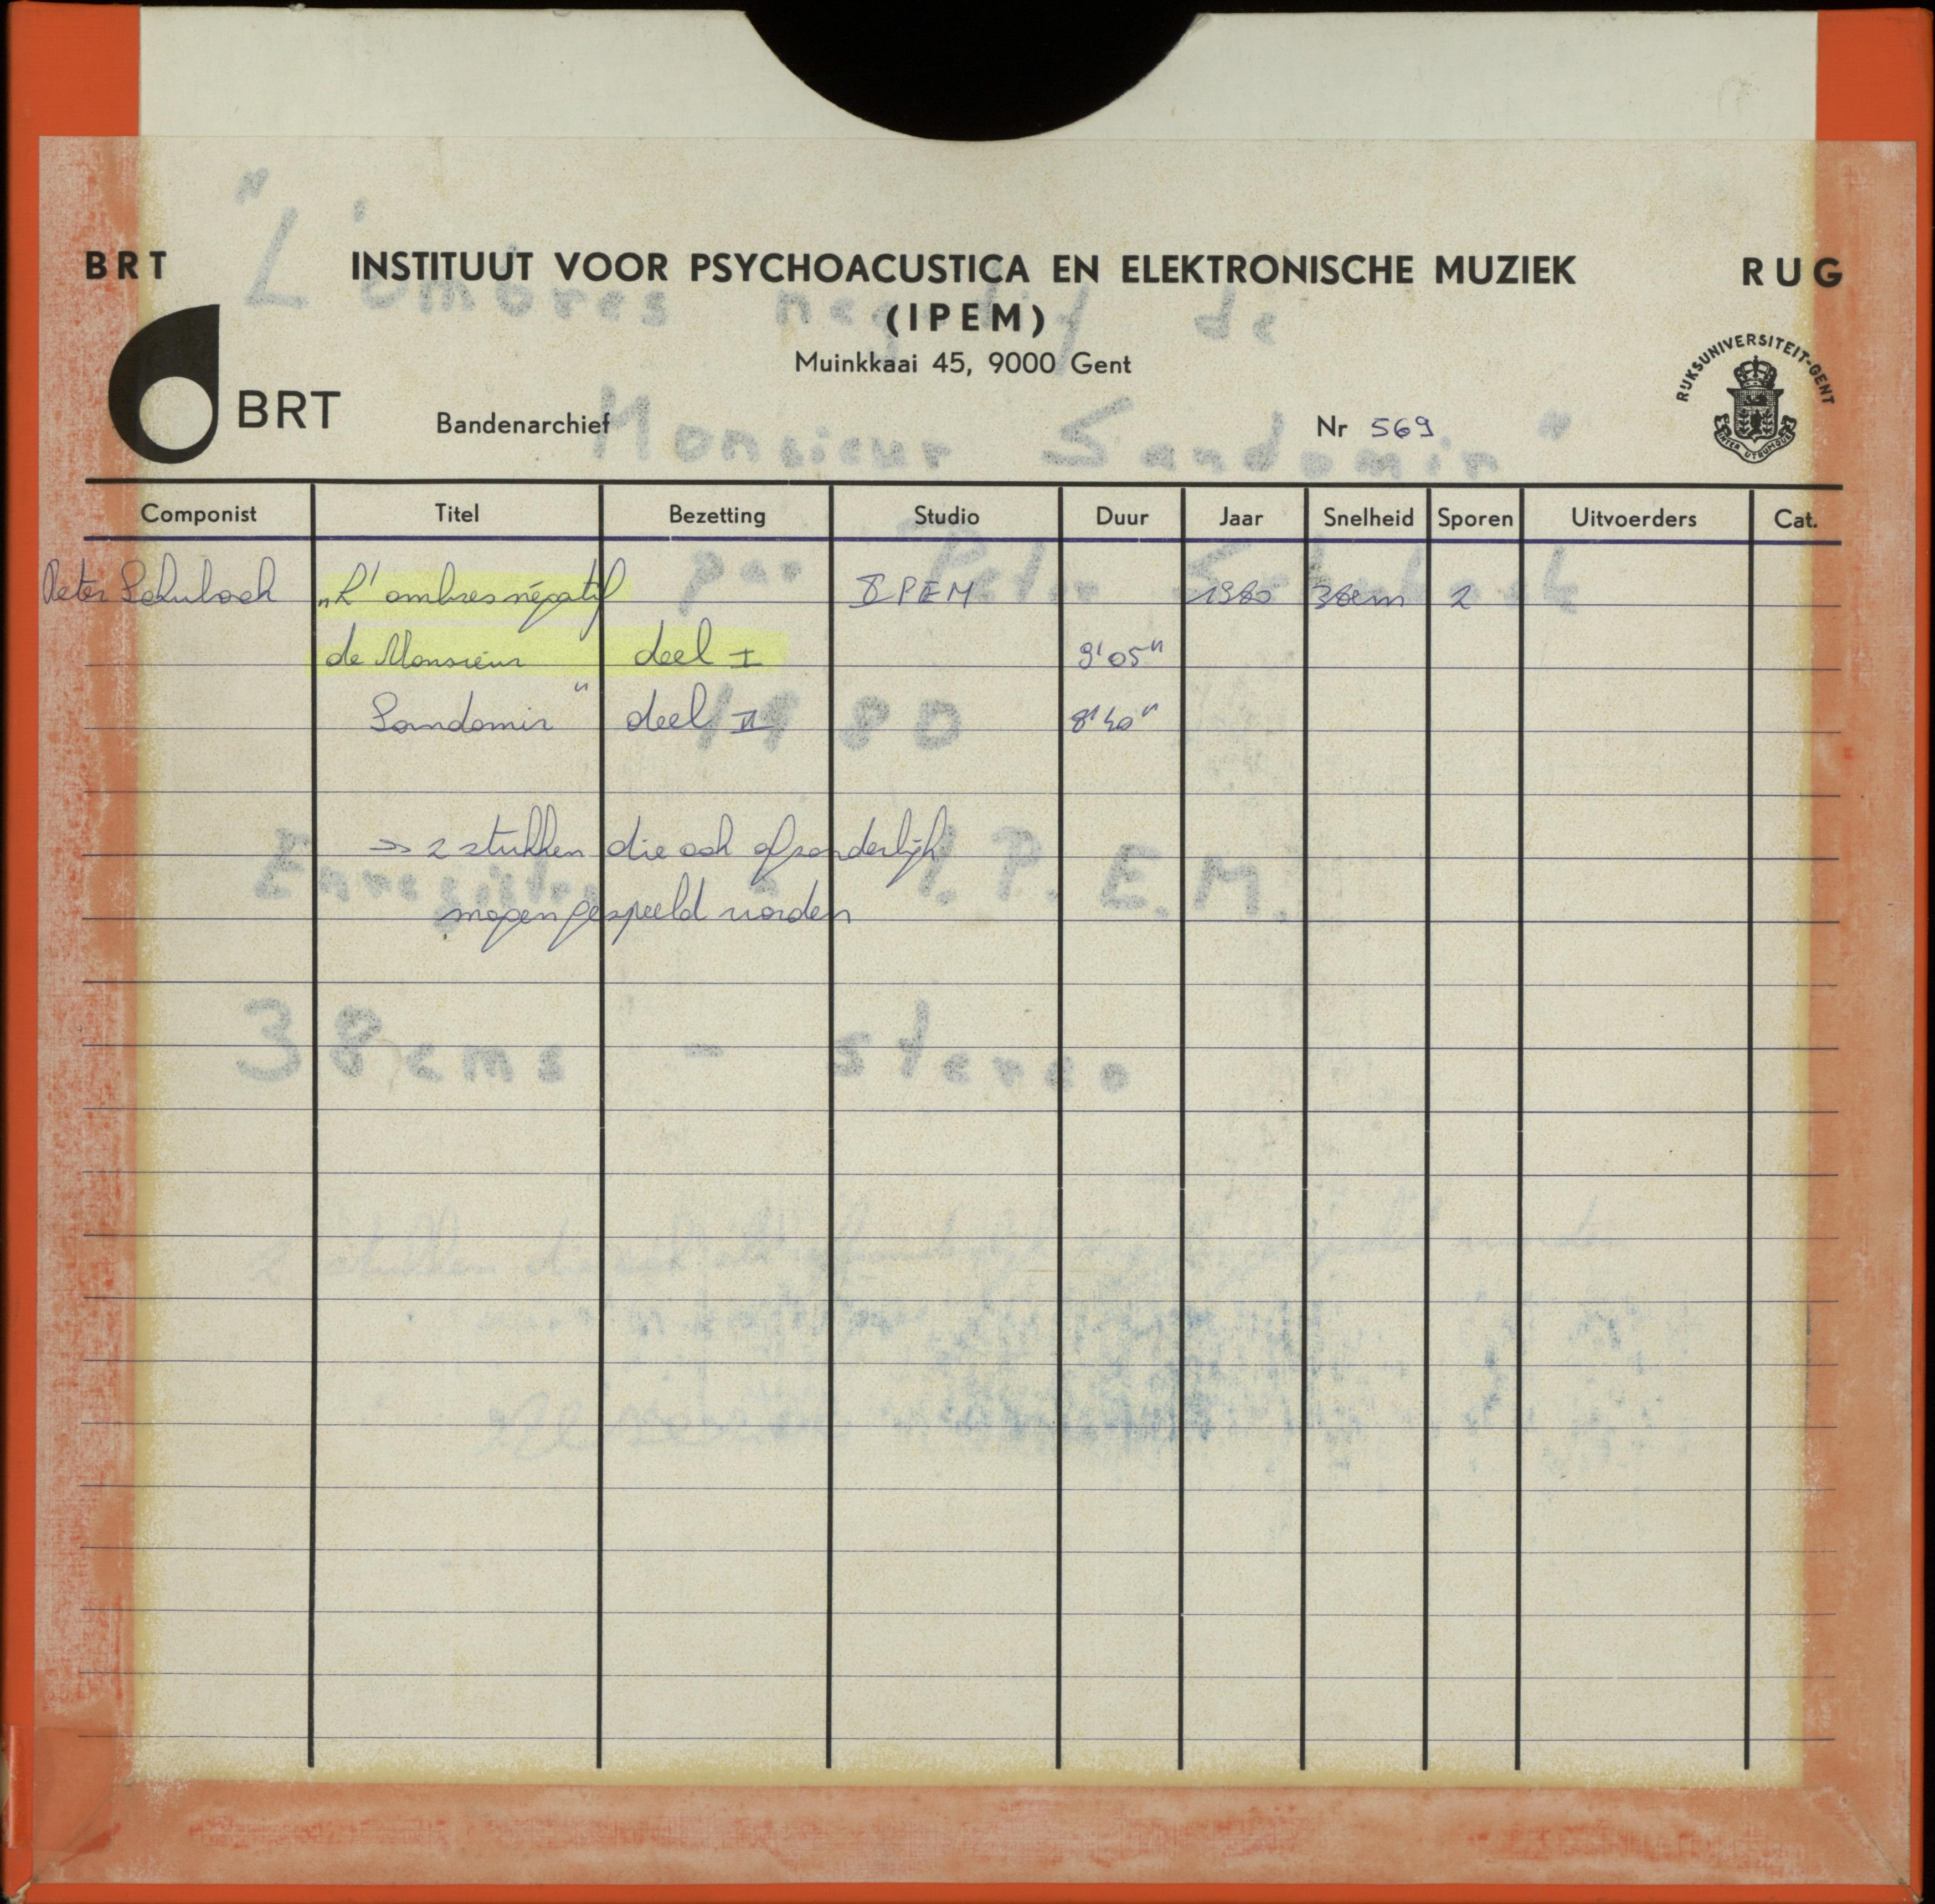 BRT INSTITUUT VOOR PSYCHOACUSTICA EN ELEKTRONISCHE MUZIEK RUG
(IPEM)
Muinkkaai 45, 9000 Gent
RIJKSUNIVERSITEIT-GENT
INTER UTRUMQUE
BRT Bandenarchief Nr 569
"L'ombres negatif de
Monsieur Sandomir"
Componist Titel Bezetting Studio Duur Jaar Snelheid Sporen Uitvoerders Cat.
par Peter Schuback
Peter Schuback „L'ombres négatif IPEM 1980 38cm 2
de Monsieur deel I 9'05"
Sandomir" deel II 8'40"
1980
=> 2 stukken die ook afzonderlijk
mogen gespeeld worden
I.P.E.M.
38cms - stereo
2 stukken worden